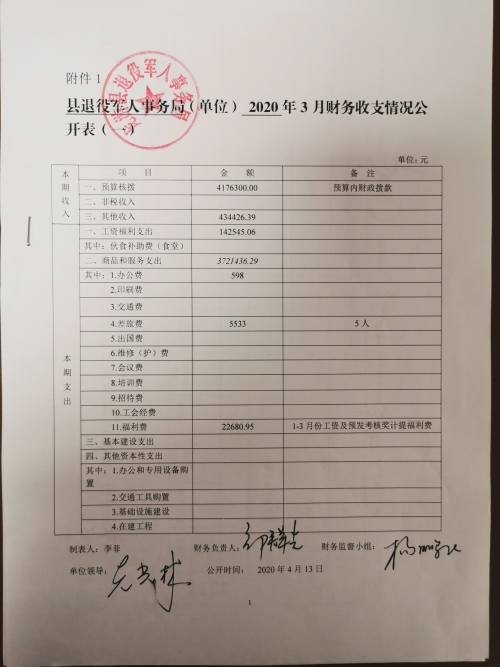 附件 1
县退役军人事务局（单位） 2020 年 3 月财务收支情况公
开表（一）
单位：元
本期收入 项 目 金 额 备 注
一、预算核拨 4176300.00 预算内财政拨款
二、非税收入
三、其他收入 434426.39
本期支出 一、工资福利支出 142545.06
其中：伙食补助费（食堂）
二、商品和服务支出 3721436.29
其中：1.办公费 598
2.印刷费
3.交通费
4.差旅费 5533 5 人
5.出国费
6.维修（护）费
7.会议费
8.培训费
9.招待费
10.工会经费
11.福利费 22680.95 1-3 月份工资及预发考核奖计提福利费
三、基本建设支出
四、其他资本性支出
其中：1.办公和专用设备购
置
2.交通工具购置
3.基础设施建设
4.在建工程
制表人：李菲 财务负责人： 财务监督小组：
单位领导： 公开时间： 2020 年 4 月 13 日
1
县退役军人事务局